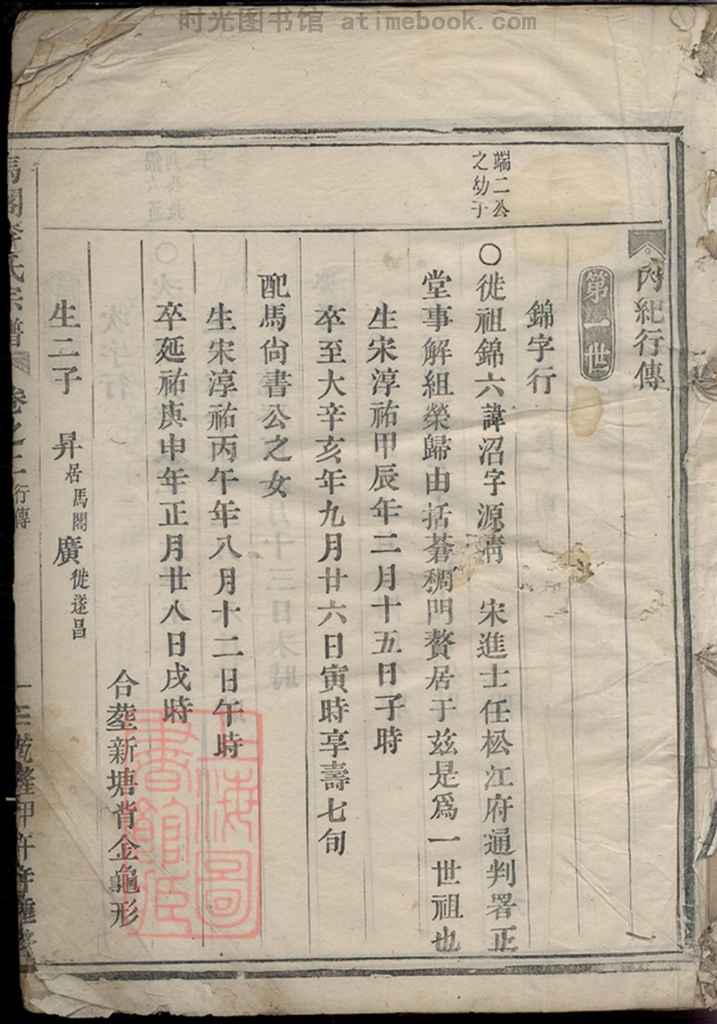 时光图书馆 atimebook.com
內紀行傳
第一世
錦字行
端二公
之幼子
○徙祖錦六諱沼字源清 宋進士任松江府通判署正
堂事解組榮歸由括蒼稠門贅居于茲是爲一世祖也
生宋淳祐甲辰年二月十五日子時
卒至大辛亥年九月廿六日寅時享壽七旬
配馬尙書公之女
生宋淳祐丙午年八月十二日午時
卒延祐庚申年正月廿八日戌時
合塟新塘背金龜形
生二子 昇居馬閣 廣徙遂昌
馬閣李氏宗譜 卷之二 行傳
上海圖書館臣